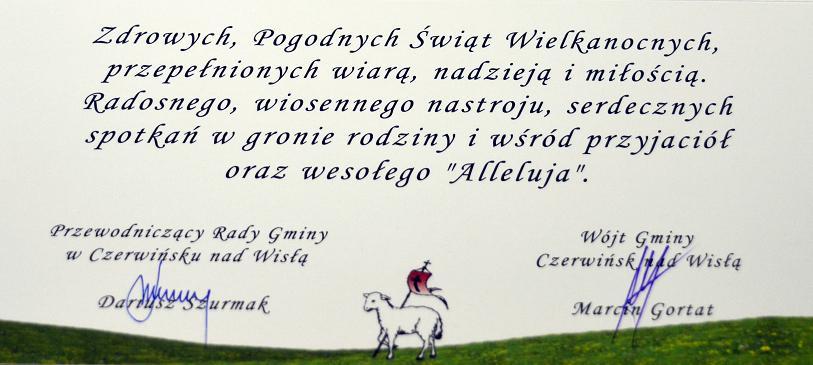 Zdrowych, Pogodnych Świąt Wielkanocnych,
przepełnionych wiarą, nadzieją i miłością.
Radosnego, wiosennego nastroju, serdecznych
spotkań w gronie rodziny i wśród przyjaciół
oraz wesołego "Alleluja".
Przewodniczący Rady Gminy
w Czerwińsku nad Wisłą
Dariusz Szurmak
Wójt Gminy
Czerwińsk nad Wisłą
Marcin Gortat